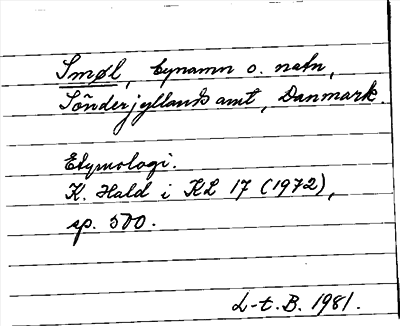 Smøl, bynamn o. natn,
Sönderjyllands amt, Danmark.
Etymologi.
K. Hald i KL 17 (1972),
sp. 500.
L-t. B. 1981.